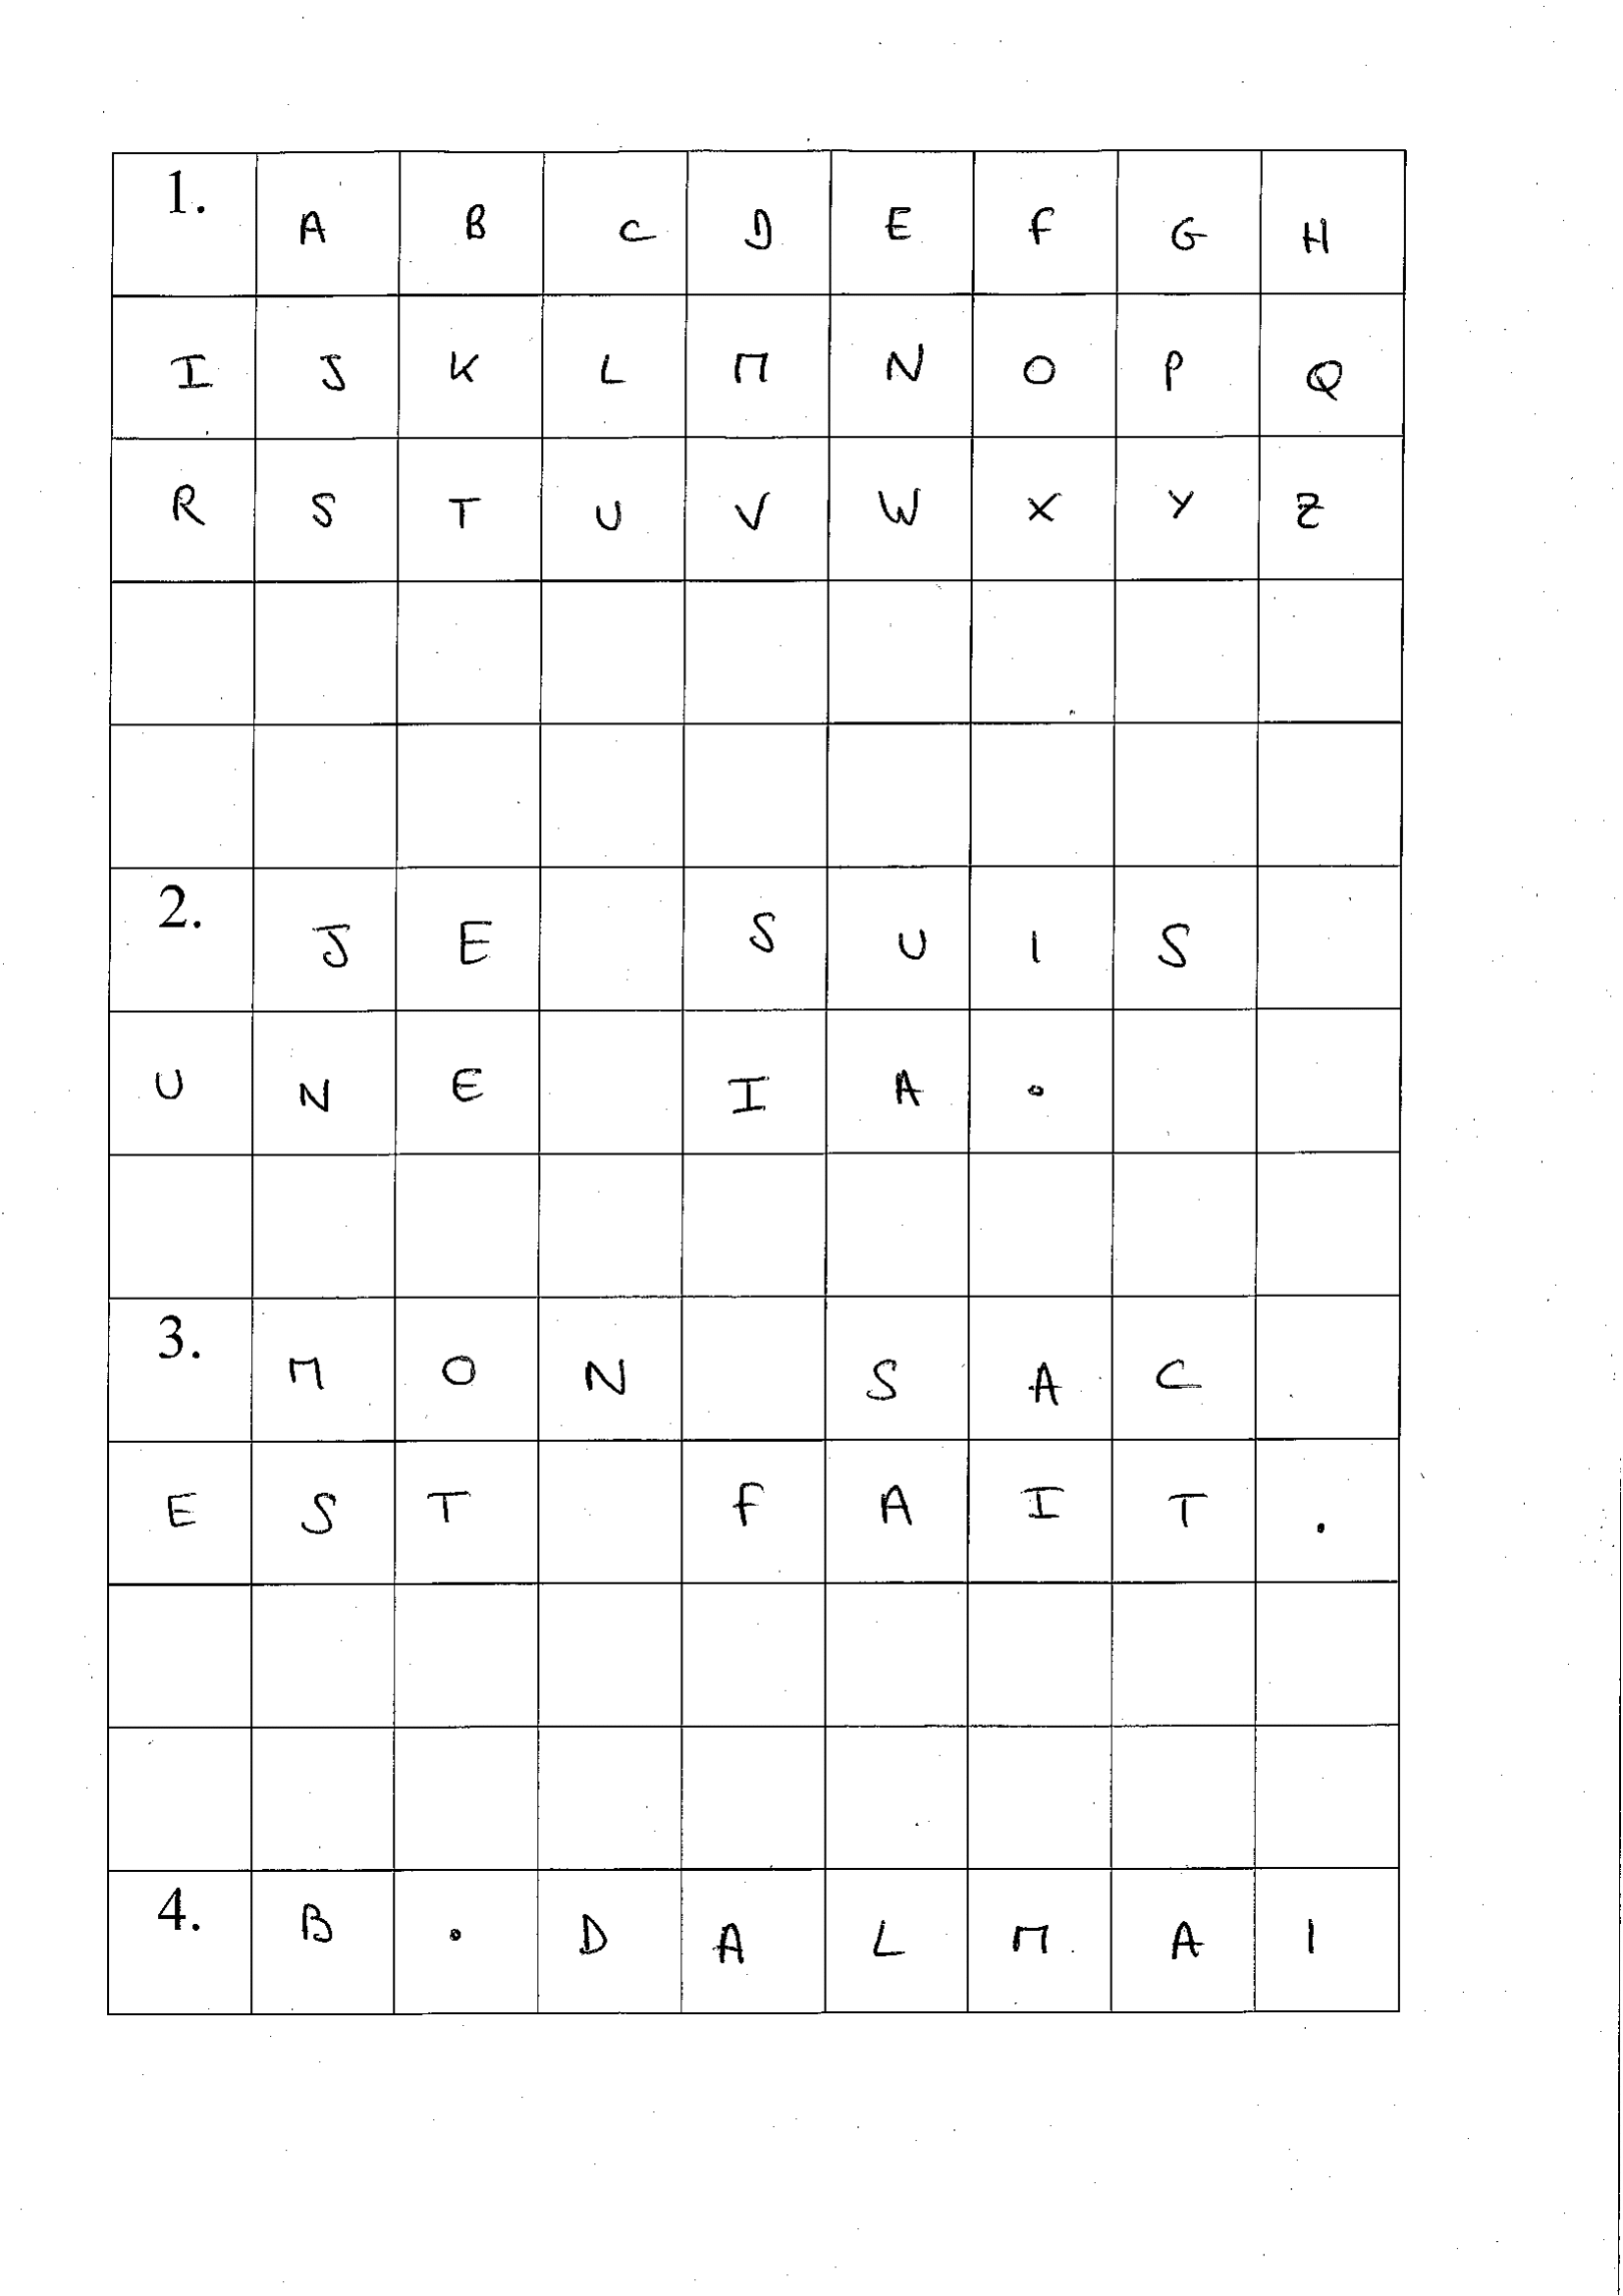 1. A B C D E F G H
I J K L M N O P Q
R S T U V W X Y Z
2. J E S U I S
U N E I A .
3. M O N S A C
E S T F A I T .
4. B . D A L M A I